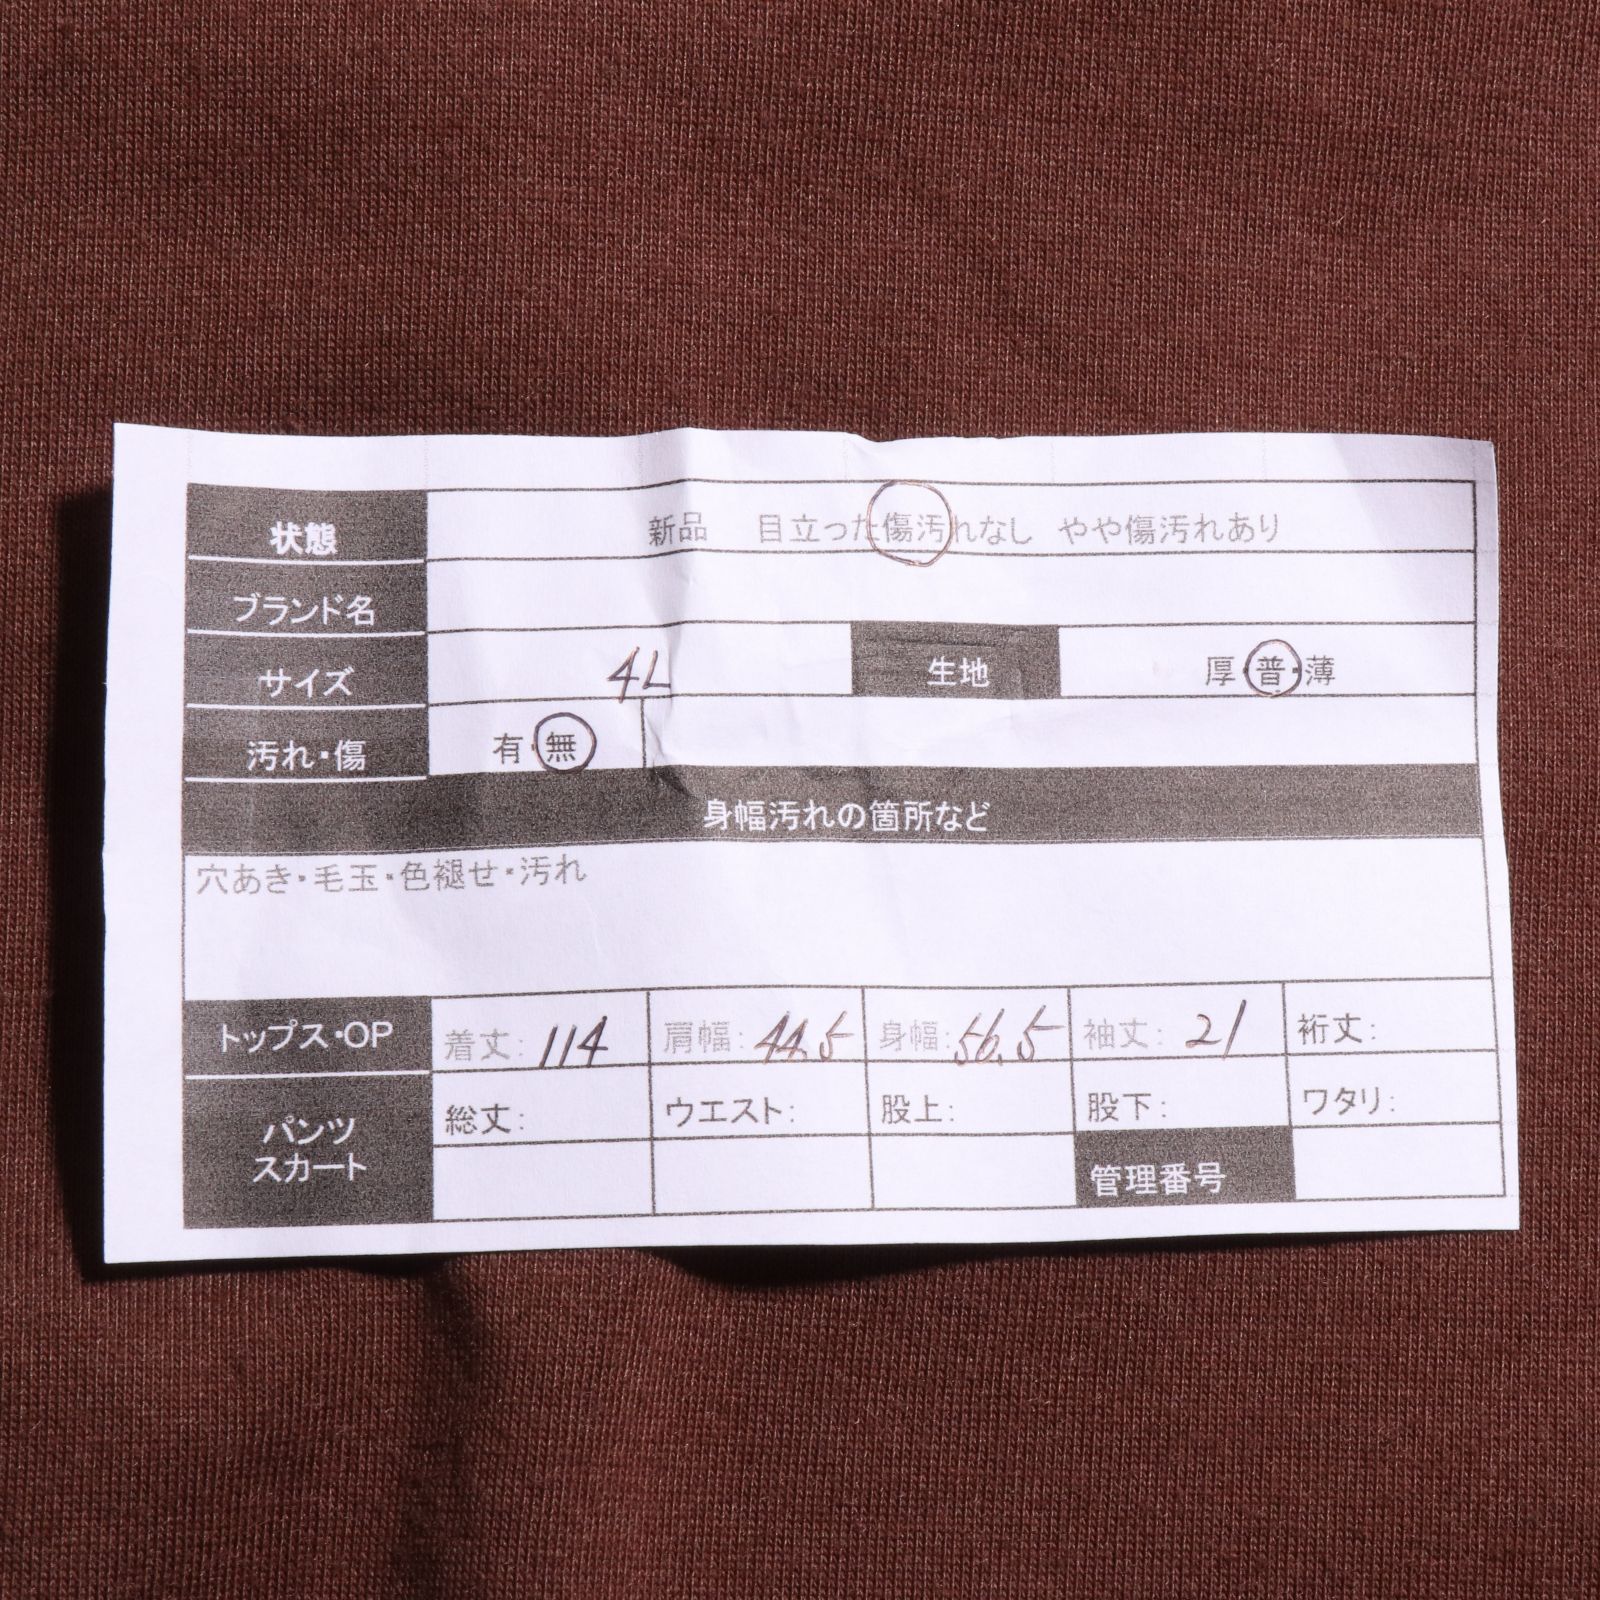 状態 新品 目立った傷汚れなし やや傷汚れあり
ブランド名
サイズ 4L 生地 厚・普・薄
汚れ・傷 有・無
身幅汚れの箇所など
穴あき・毛玉・色褪せ・汚れ
トップス・OP 着丈: 114 肩幅: 44.5 身幅: 56.5 袖丈: 21 裄丈:
パンツ
スカート 総丈: ウエスト: 股上: 股下: ワタリ:
管理番号